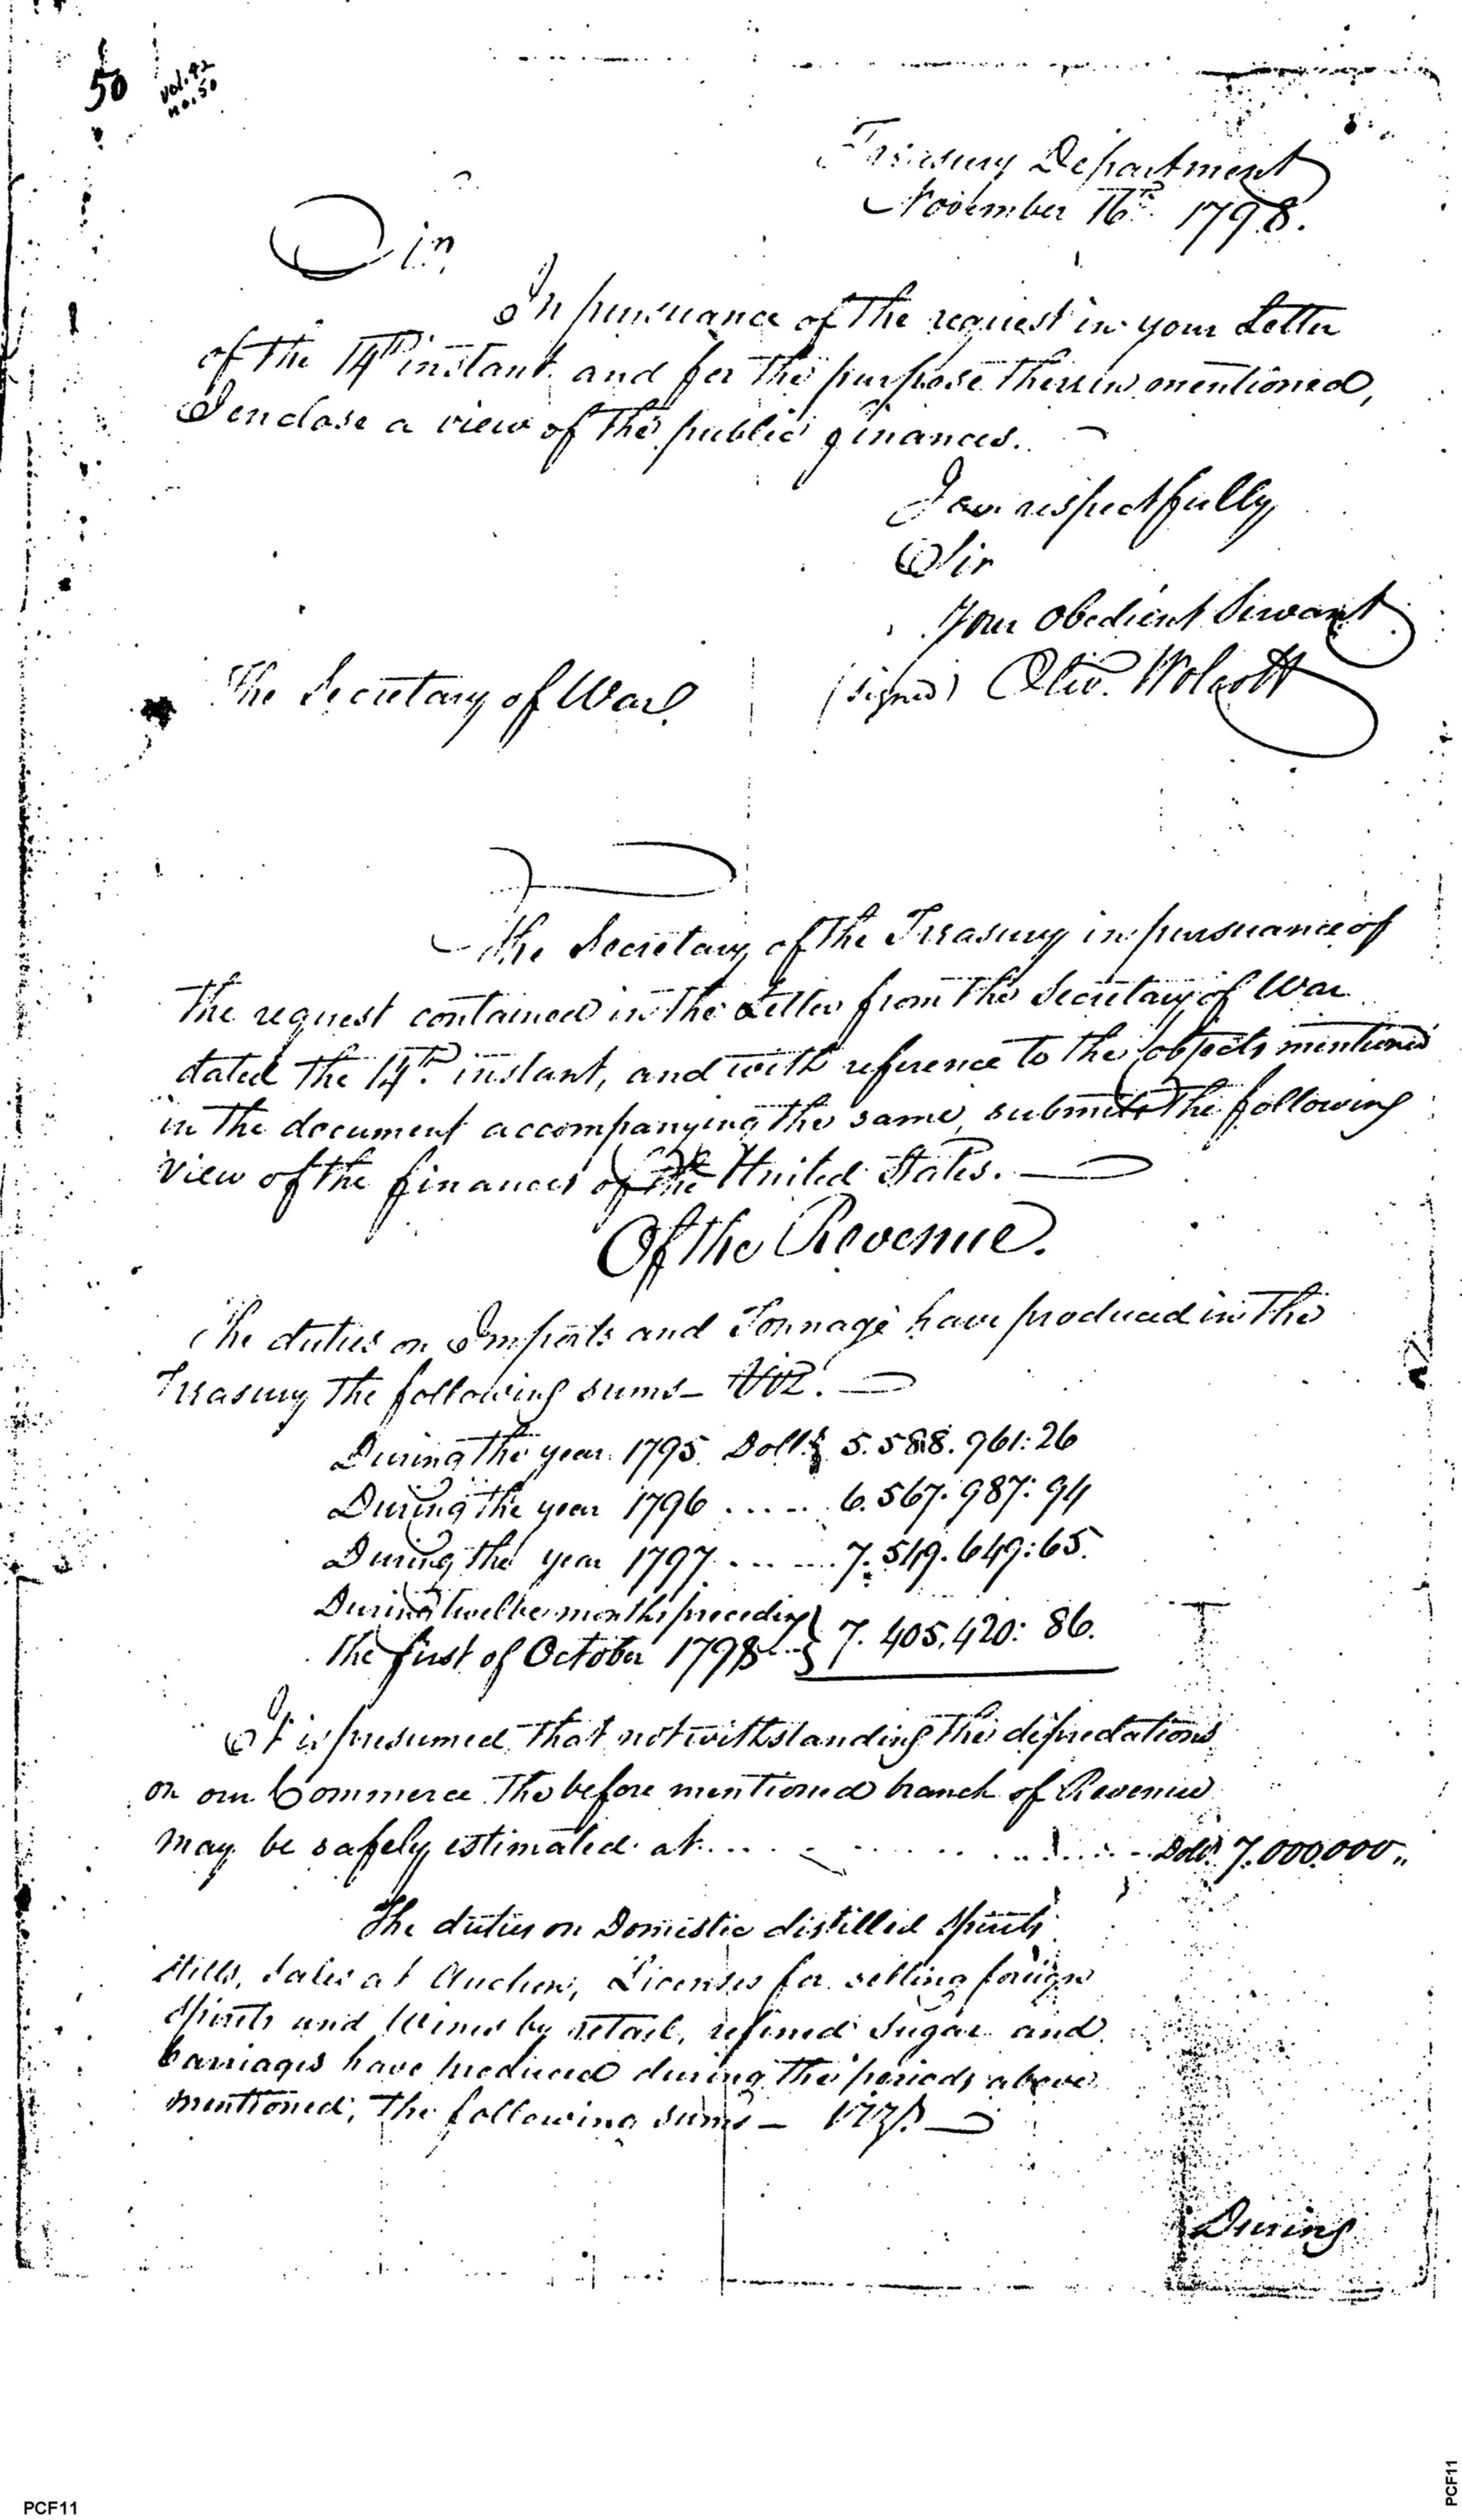 50
vol. 42
no. 50
Treasury Department
November 16th 1798.
Sir,
In pursuance of the request in your Letter
of the 14th instant and for the purpose therein mentioned,
I enclose a view of the public finances.
I am respectfully
Sir
Your Obedient Servant
The Secretary of War.
(signed) Oliv. Wolcott
The Secretary of the Treasury in pursuance of
the request contained in the Letter from the Secretary of War
dated the 14th. instant, and with reference to the objects mentioned
in the document accompanying the same, submits the following
view of the finances of the United States.
Of the Revenue.
The duties on Imports and Tonnage have produced in the
Treasury the following sums – Viz.
During the year 1795 Dolls 5.588.961:26
During the year 1796 ..... 6.567.987:94
During the year 1797 ...... 7.549.649:65.
During twelve months preceding
the first of October 1798 ... } 7.405.420: 86.
It is presumed that notwithstanding the depredations
on our Commerce the before mentioned branch of Revenue
may be safely estimated at ... Dolls. 7.000.000 „
The duties on Domestic distilled Spirits
Stills, Sales at Auction, Licenses for selling foreign
Spirits and Wines by retail, refined Sugar and
Carriages have produced during the periods above
mentioned, the following sums – Viz.
During
PCF11
PCF11